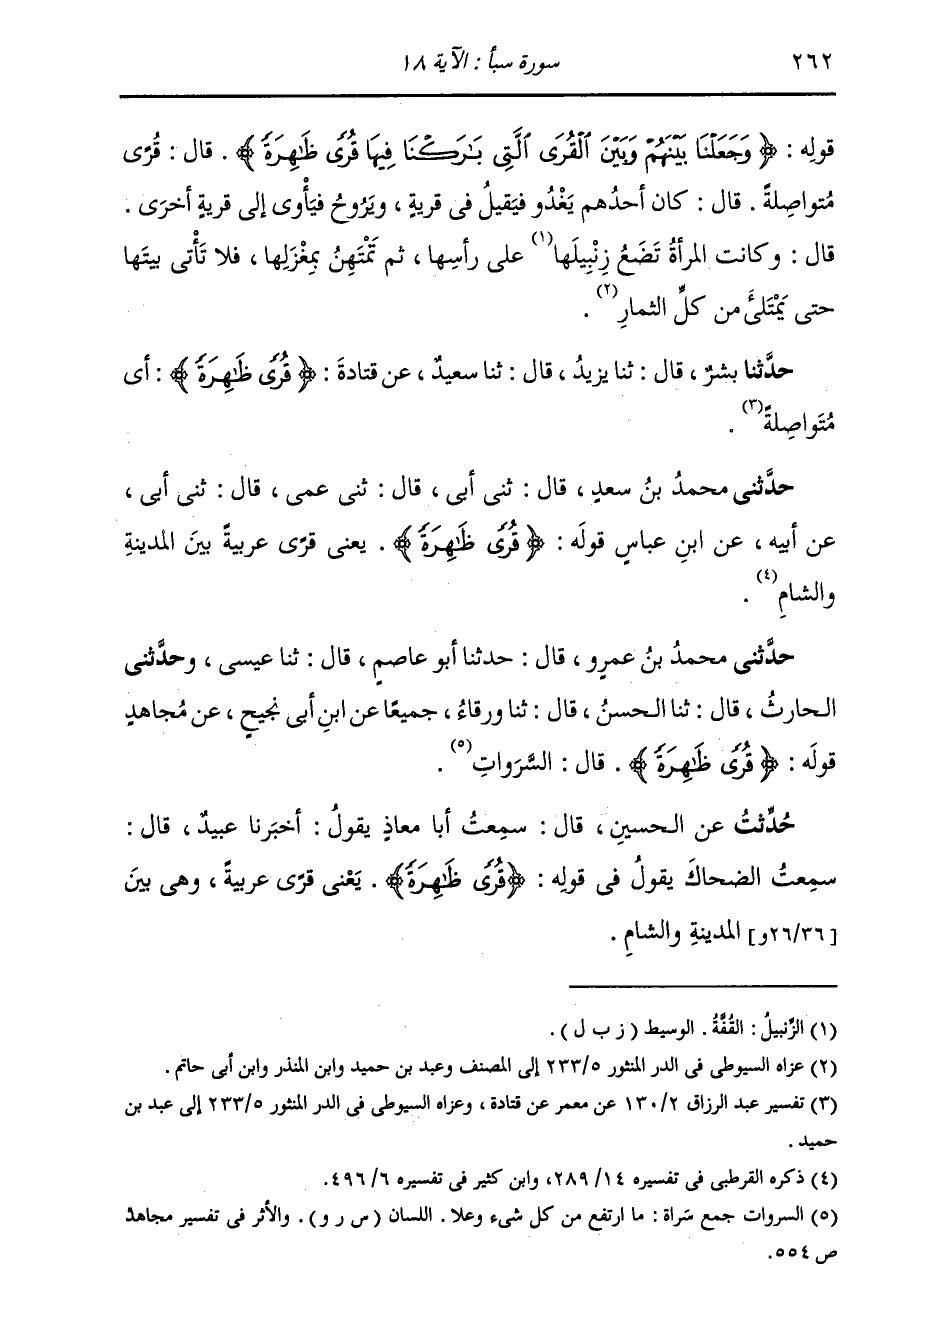 ٢٦٢ سورة سبأ : الآية ١٨
قولِه : ﴿ وَجَعَلْنَا بَيْنَهُمْ وَبَيْنَ ٱلْقُرَى ٱلَّتِى بَـٰرَكْنَا فِيهَا قُرًى ظَـٰهِرَةً ﴾ . قال : قُرًى
مُتواصِلةً . قال : كان أحدُهم يَغْدُو فيَقيلُ فى قريةٍ ، ويَرُوحُ فيَأْوى إلى قريةٍ أخرَى .
قال : وكانت المرأةُ تَضَعُ زِنْبِيلَها(١) على رأسِها ، ثم تَمْتَهِنُ بِمِغْزَلِها ، فلا تَأْتى بيتَها
حتى يَمْتَلئَ من كلِّ الثمارِ(٢) .
حدَّثنا بشرٌ ، قال : ثنا يزيدُ ، قال : ثنا سعيدٌ ، عن قتادةَ : ﴿ قُرًى ظَـٰهِرَةً ﴾ : أى
مُتَواصِلةً(٣) .
حدَّثنى محمدُ بنُ سعدٍ ، قال : ثنى أبى ، قال : ثنى عمى ، قال : ثنى أبى ،
عن أبيه ، عن ابنِ عباسٍ قولَه : ﴿ قُرًى ظَـٰهِرَةً ﴾ . يعنى قرًى عربيةً بينَ المدينةِ
والشامِ(٤) .
حدَّثنى محمدُ بنُ عمرٍو ، قال : حدثنا أبو عاصمٍ ، قال : ثنا عيسى ، وحدَّثنى
الحارثُ ، قال : ثنا الحسنُ ، قال : ثنا ورقاءُ ، جميعًا عن ابنِ أبى نجيحٍ ، عن مُجاهدٍ
قولَه : ﴿ قُرًى ظَـٰهِرَةً ﴾ . قال : السَّرَواتِ(٥) .
حُدِّثتُ عن الحسينِ ، قال : سمِعتُ أبا معاذٍ يقولُ : أخبَرنا عبيدٌ ، قال :
سمِعتُ الضحاكَ يقولُ فى قولِه : ﴿ قُرًى ظَـٰهِرَةً ﴾ . يَعْنى قرًى عربيةً ، وهى بينَ
[٢٦/٣٦و] المدينةِ والشامِ .
(١) الزِّنبيلُ : القُفَّةُ . الوسيط (ز ب ل) .
(٢) عزاه السيوطى فى الدر المنثور ٢٣٣/٥ إلى المصنف وعبد بن حميد وابن المنذر وابن أبى حاتم .
(٣) تفسير عبد الرزاق ١٣٠/٢ عن معمر عن قتادة ، وعزاه السيوطى فى الدر المنثور ٢٣٣/٥ إلى عبد بن
حميد .
(٤) ذكره القرطبى فى تفسيره ٢٨٩/١٤، وابن كثير فى تفسيره ٤٩٦/٦.
(٥) السروات جمع سَراة : ما ارتفع من كل شىء وعلا . اللسان (س ر و) . والأثر فى تفسير مجاهد
ص ٥٥٤.